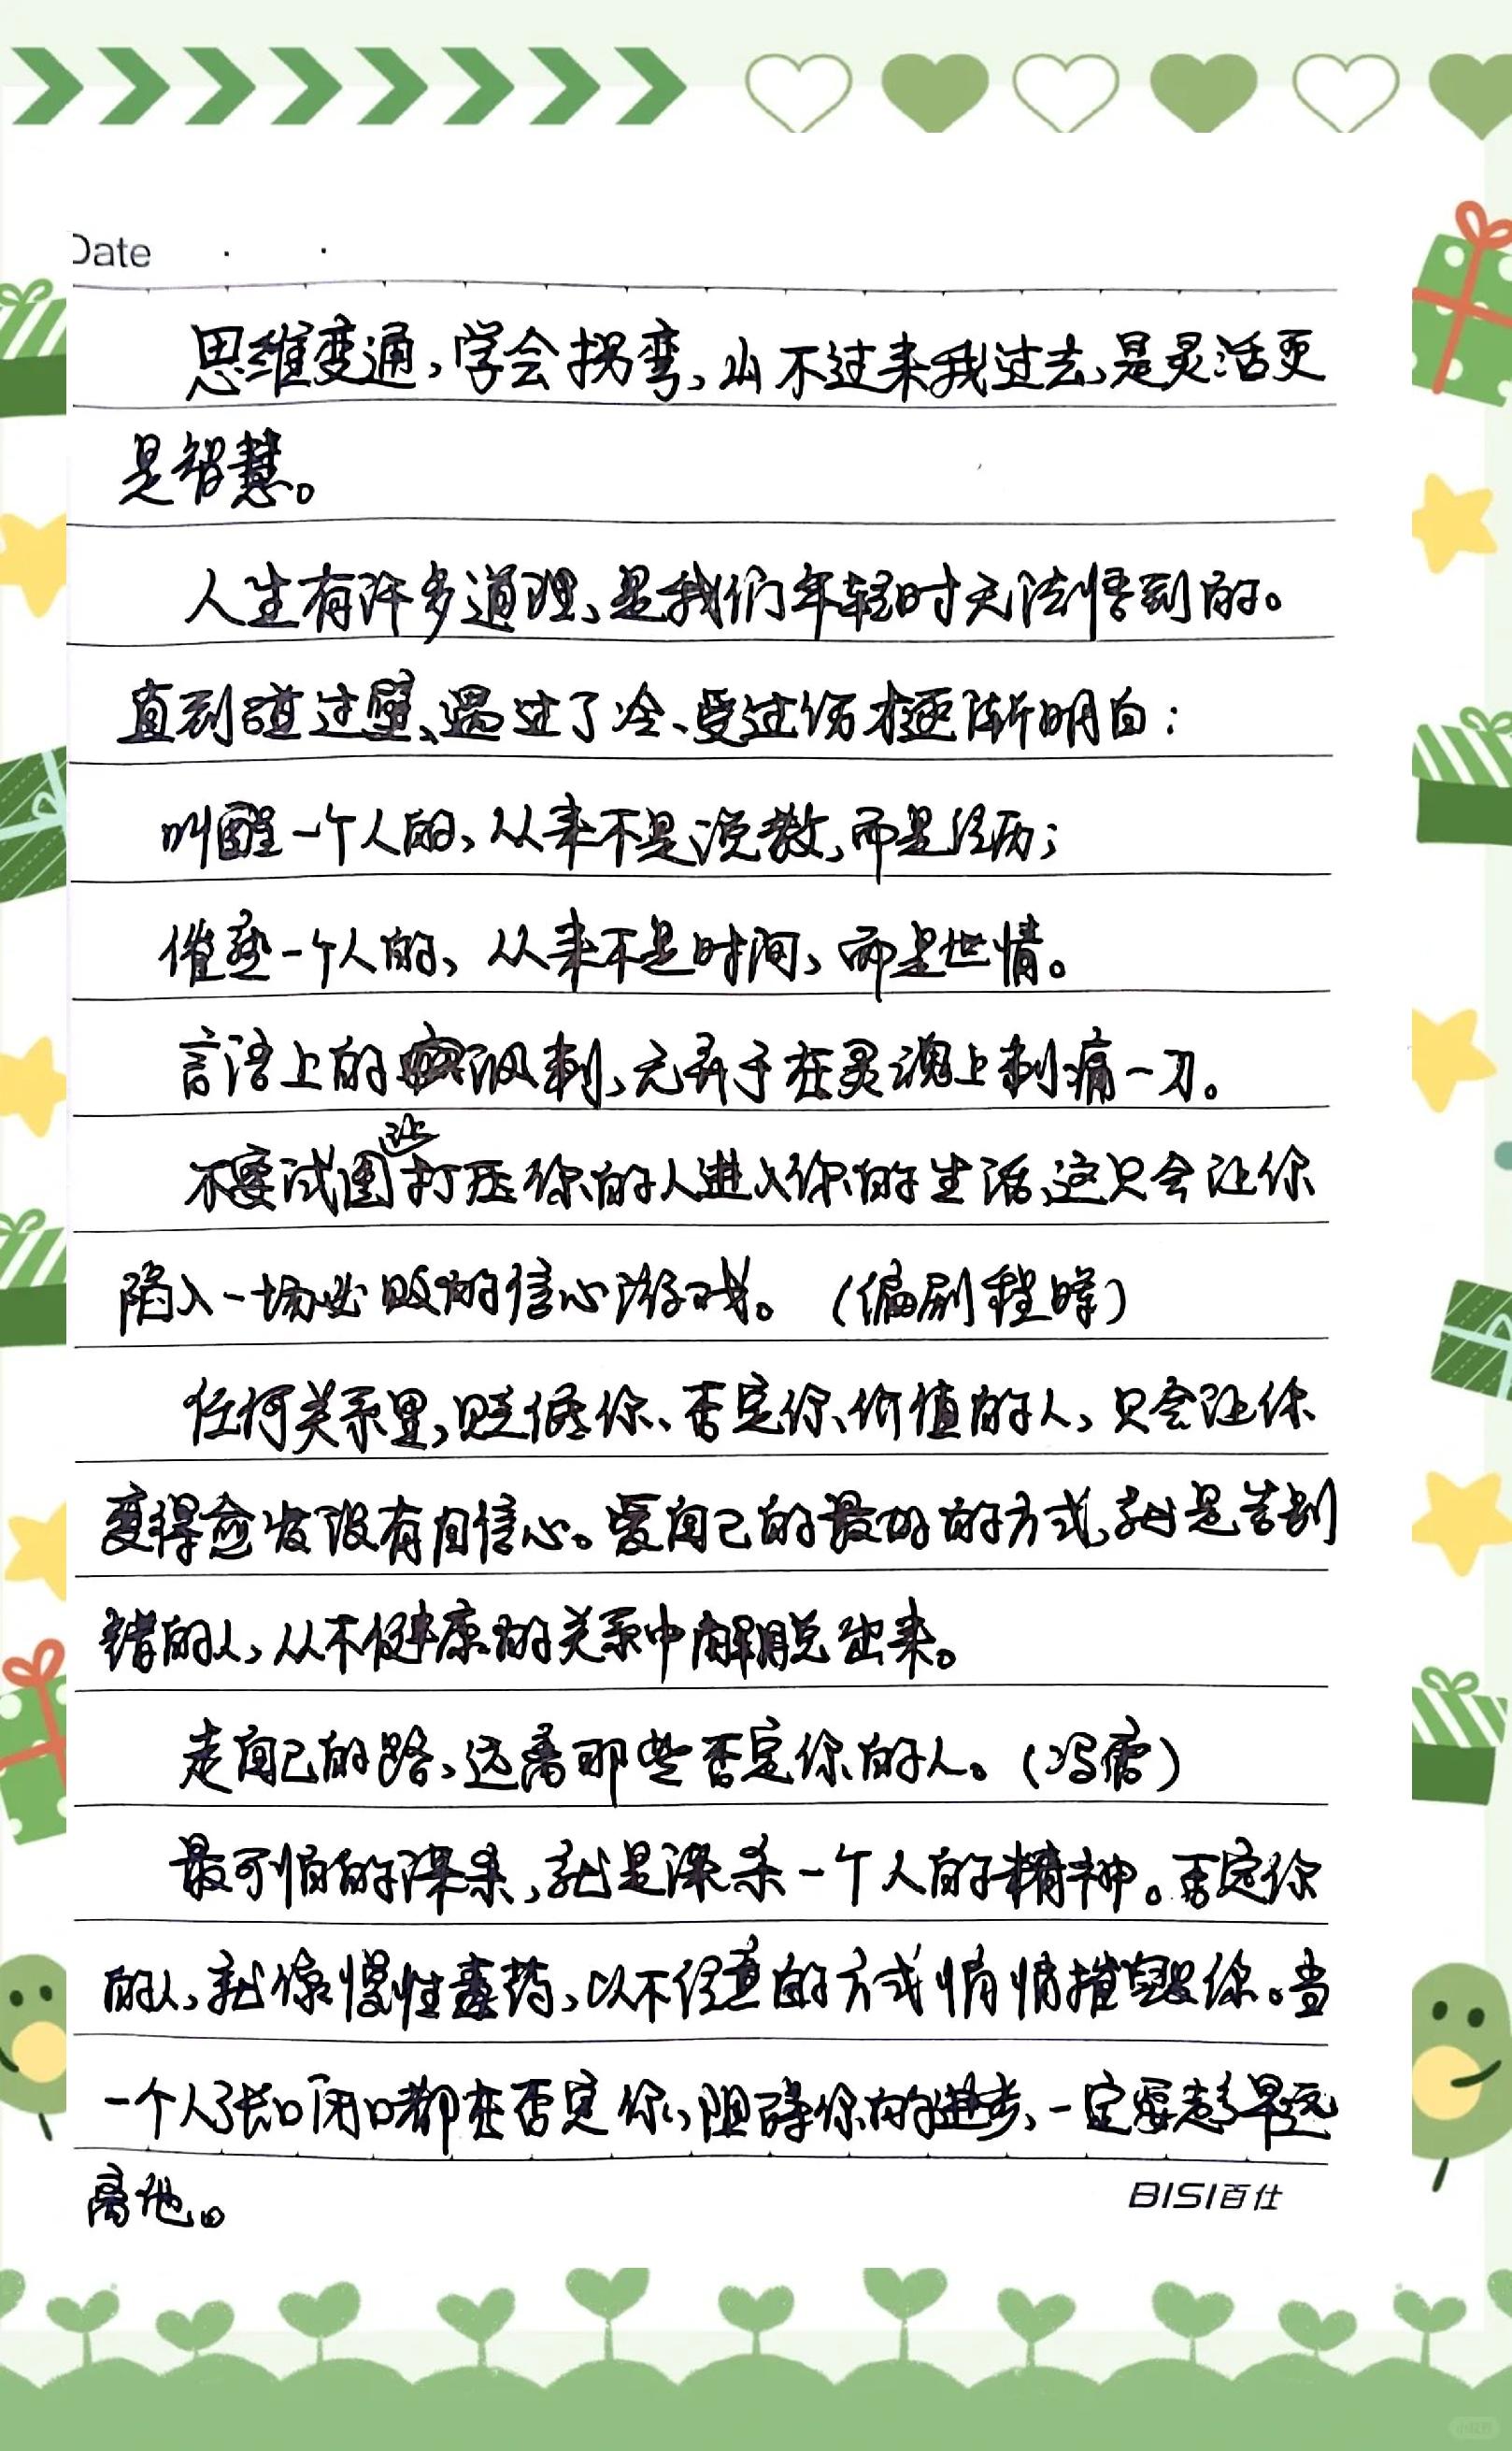 Date
思维变通，学会拐弯，山不过来我过去，是灵活更
是智慧。
人生有许多道理，是我们年轻时无法悟到的。
直到碰过壁、遇过了冷、受过伤才逐渐明白：
叫醒一个人的，从来不是说教，而是经历；
催熟一个人的，从来不是时间，而是世情。
言语上的讽刺，无异于在灵魂上刺痛一刀。
不要试图让打压你的人进入你的生活，这只会让你
陷入一场必败的信心游戏。（编剧程璨）
任何关系里，贬低你、否定你价值的人，只会让你
变得愈发没有自信心。爱自己的最好的方式，就是告别
错的人，从不健康的关系中解脱出来。
走自己的路，远离那些否定你的人。（冯唐）
最可怕的谋杀，就是谋杀一个人的精神。否定你
的人，就像慢性毒药，以不经意的方式悄悄摧毁你。当
一个人张口闭口都在否定你，阻碍你的进步，一定要趁早远
离他。
BISI百仕